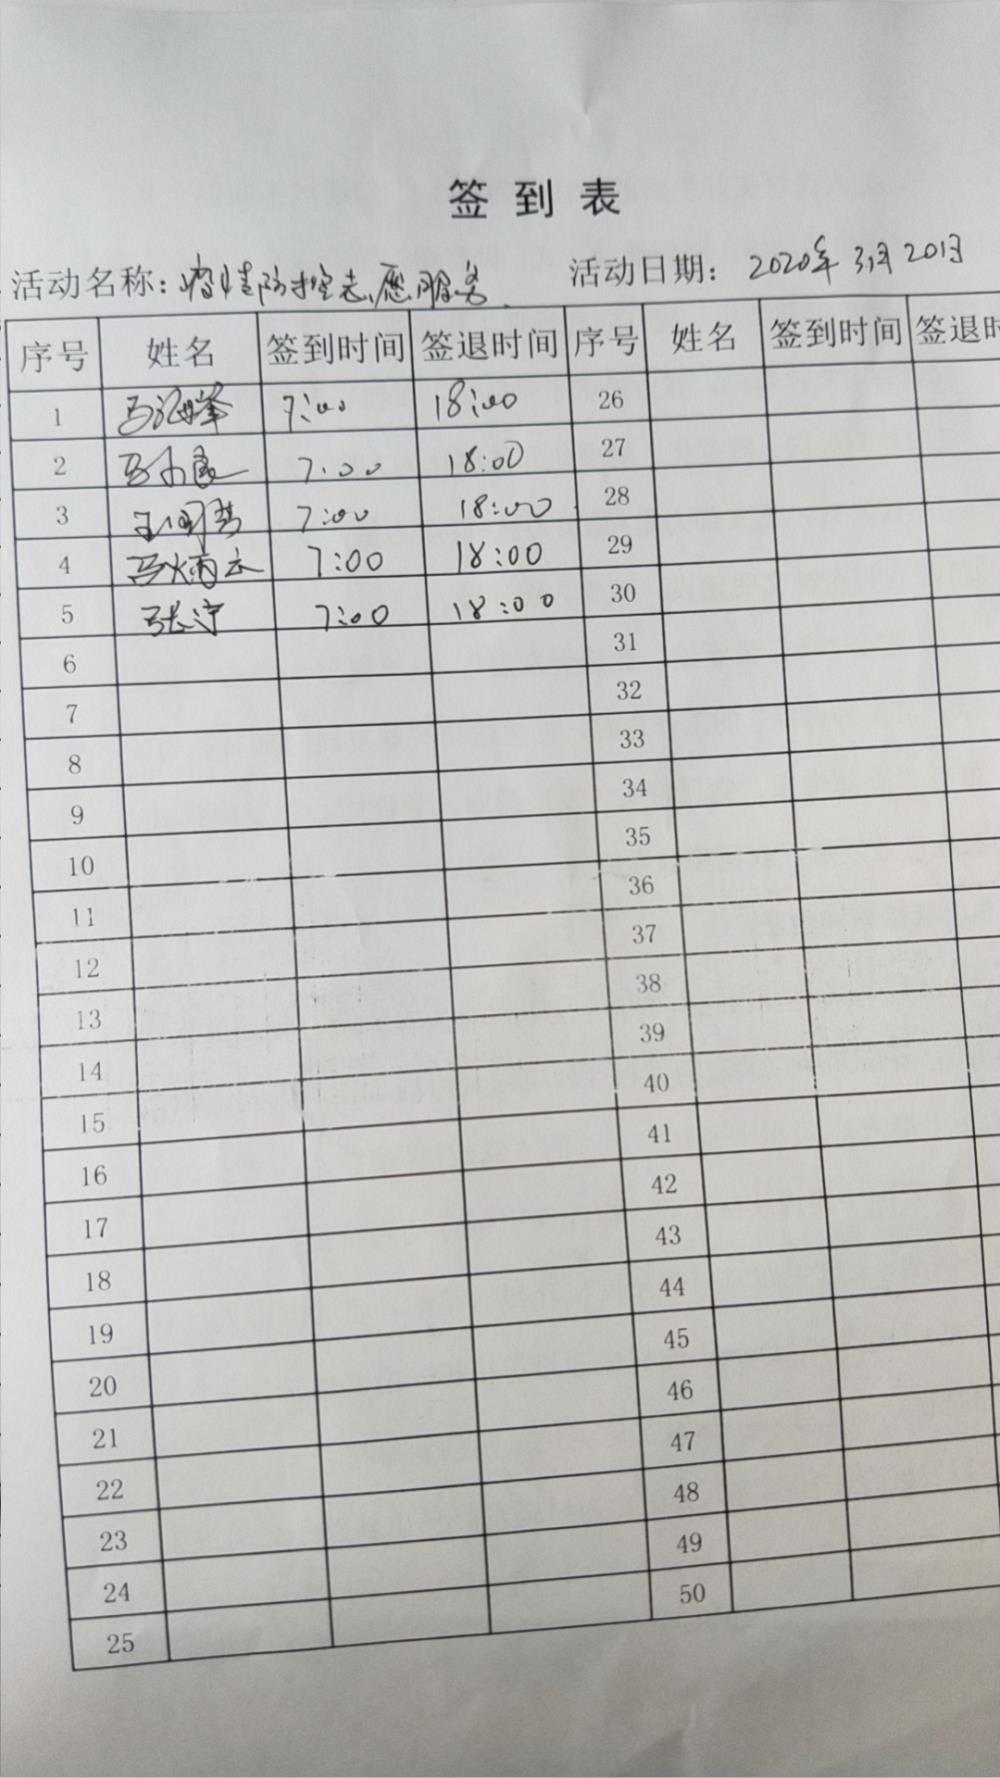 签到表
活动名称：疫情防控志愿服务 活动日期：2020年3月20日
序号 姓名 签到时间 签退时间 序号 姓名 签到时间 签退时
1 7:00 18:00 26
2 7:00 18:00 27
3 7:00 18:00 28
4 7:00 18:00 29
5 张宁 7:00 18:00 30
6 31
7 32
8 33
9 34
10 35
11 36
12 37
13 38
14 39
15 40
16 41
17 42
18 43
19 44
20 45
21 46
22 47
23 48
24 49
25 50